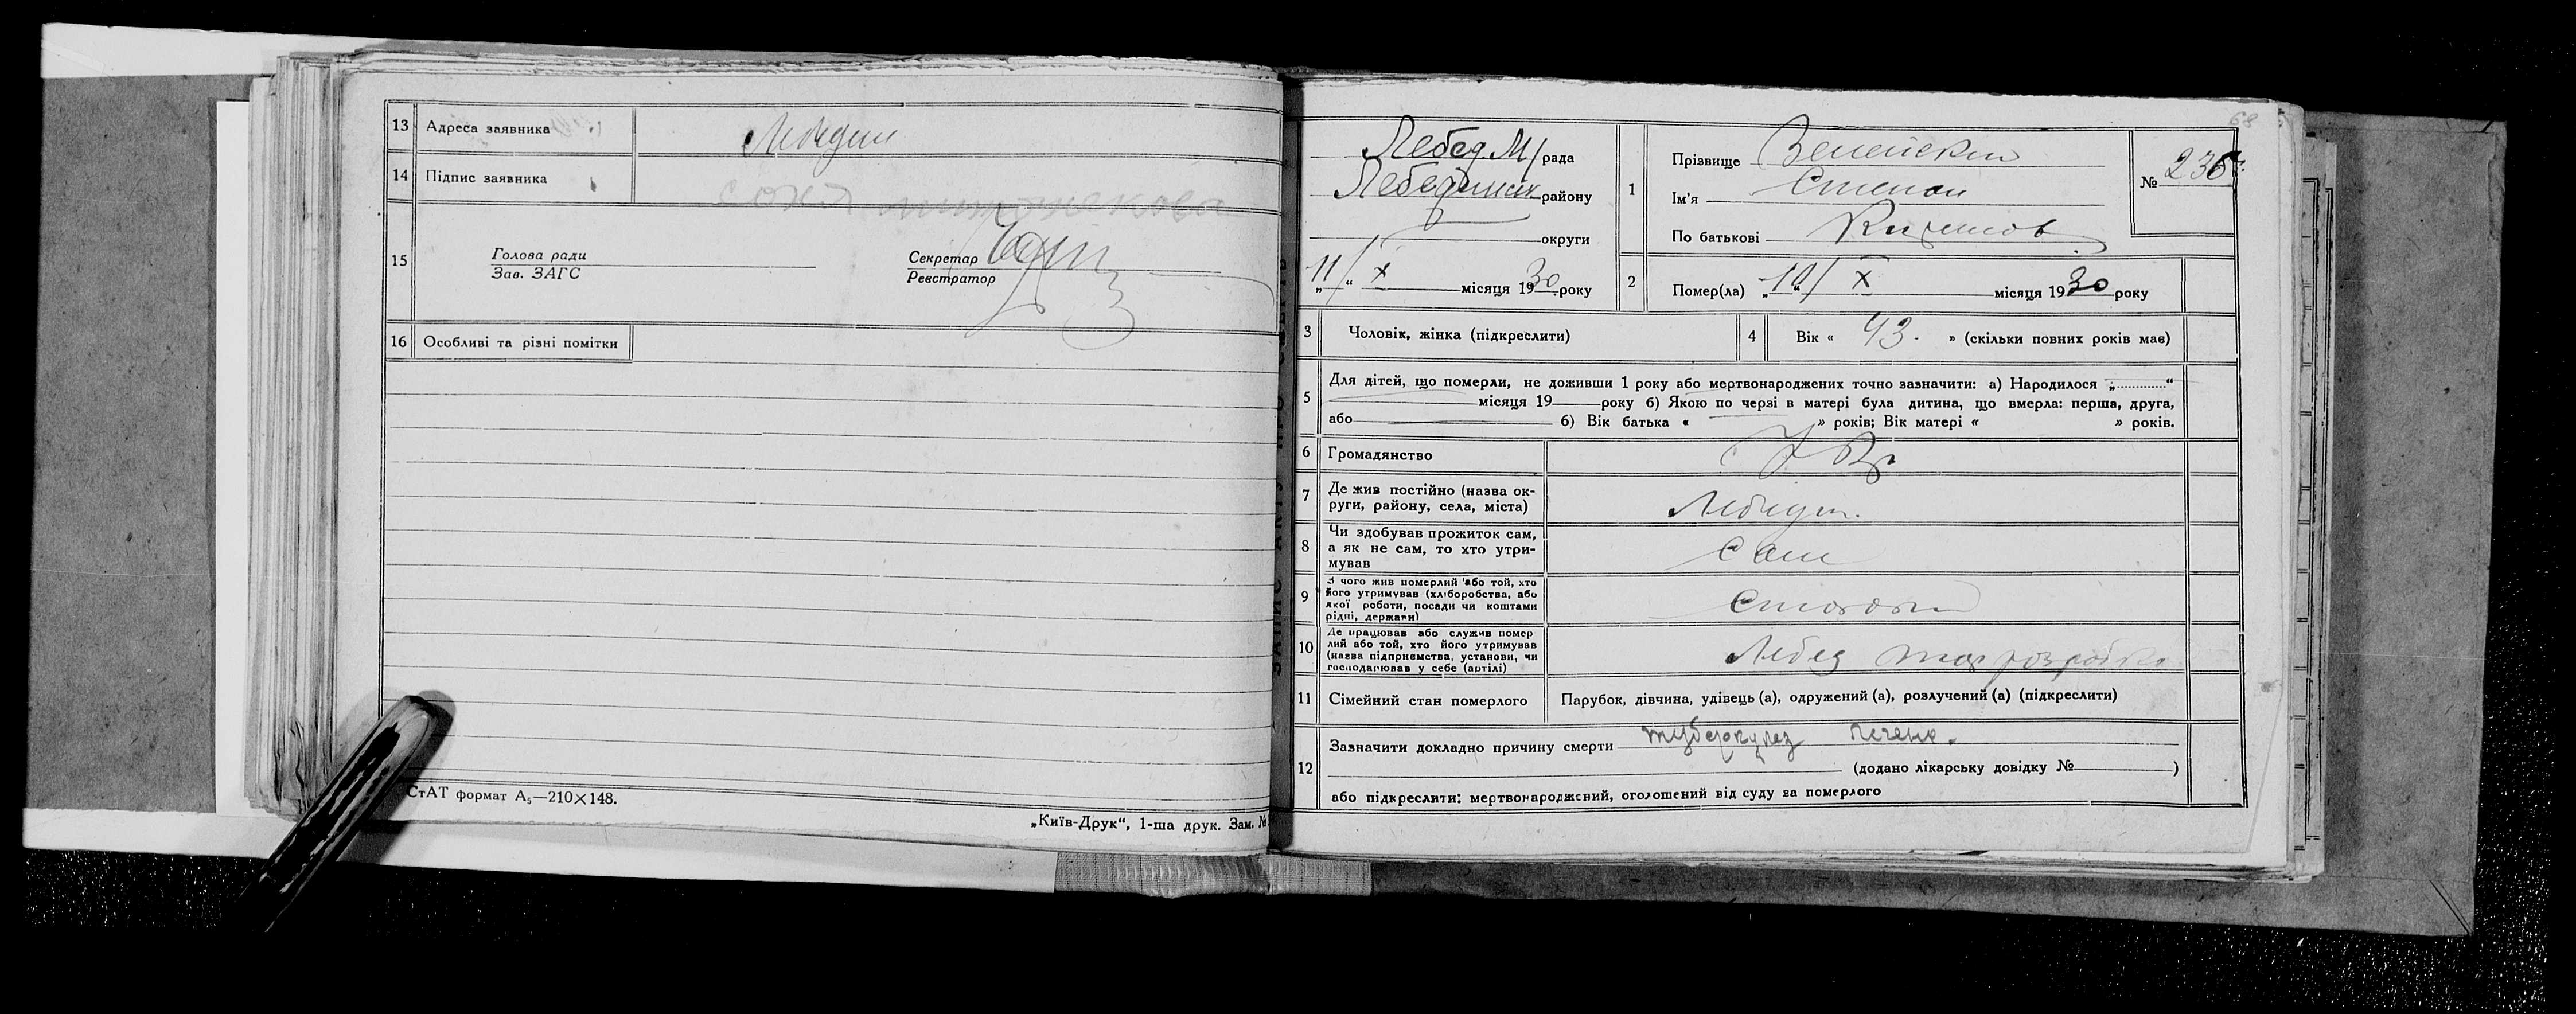 13 Адреса заявника Лебедин
14 Підпис заявника соня
15 Голова ради
Зав. ЗАГС
Секретар
Реєстратор
16 Особливі та різні помітки
СтАТ формат А₅—210×148.
„Київ-Друк“, 1-ша друк. Зам. №
68
Лебед. М/рада
Лебединськ району
округи
„11“ / X місяця 1930 року
1 Прізвище
Ім'я Степан
По батькові
№ 236
2 Помер(ла) „10“ / X місяця 1930 року
3 Чоловік, жінка (підкреслити)
4 Вік « 43. » (скільки повних років має)
5 Для дітей, що померли, не доживши 1 року або мертвонароджених точно зазначити: а) Народилося „ “
місяця 19 року б) Якою по черзі в матері була дитина, що вмерла: перша, друга,
або б) Вік батька « » років; Вік матері « » років.
6 Громадянство
7 Де жив постійно (назва ок-
руги, району, села, міста) Лебедин.
8 Чи здобував прожиток сам,
а як не сам, то хто утри-
мував Сам
9 З чого жив померлий або той, хто
його утримував (хліборобства, або
якої роботи, посади чи коштами
рідні, держави)
10 Де працював або служив помер
лий або той, хто його утримував
(назва підприємства, установи, чи
господарював у себе (артілі) Лебед
11 Сімейний стан померлого Парубок, дівчина, удівець (а), одружений (а), розлучений (а) (підкреслити)
12 Зазначити докладно причину смерти туберкулез печени.
(додано лікарську довідку № )
або підкреслити: мертвонароджений, оголошений від суду за померлого